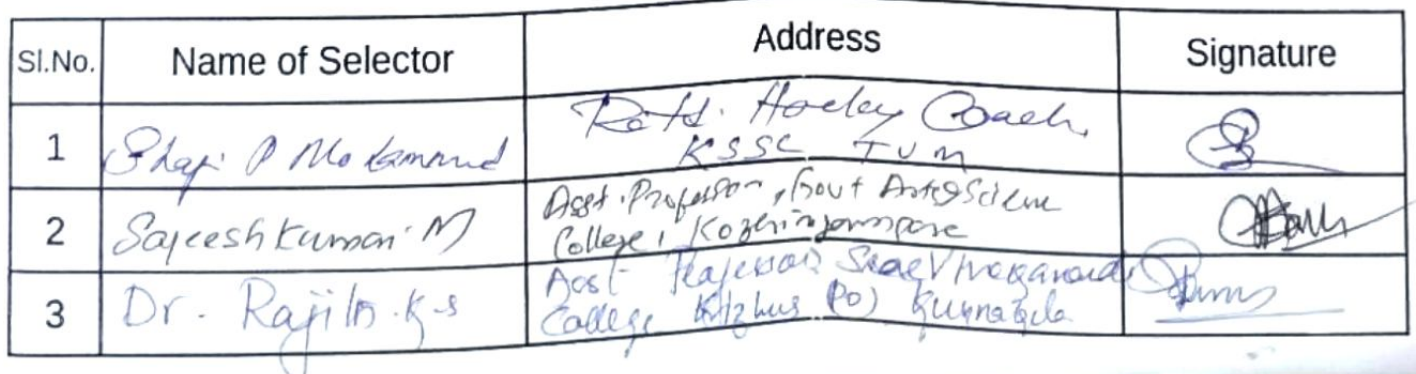 Sl.No. Name of Selector Address Signature
1 Shaji P Mohammed Retd. Hockey Coach,
KSSC TVM
2 Sajeeshkumar M Asst. Professor, Govt Arts & Science
College,
3 Dr. K.S Asst Professor Sree Vivekananda
College (PO)